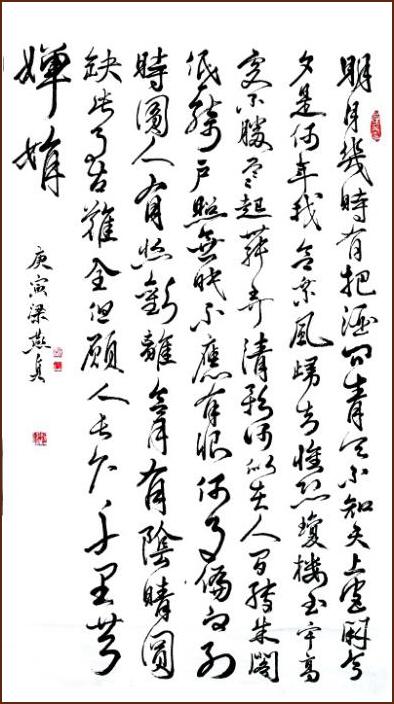 明月幾時有把酒問青天不知天上宮闕今
夕是何年我欲乘風歸去惟恐瓊樓玉宇高
處不勝寒起舞弄清影何似在人間轉朱閣
低綺戶照無眠不應有恨何事偏向别
時圓人有悲歡離合月有陰晴圓
缺此事古難全但願人長久千里共
嬋娟
庚寅梁燕